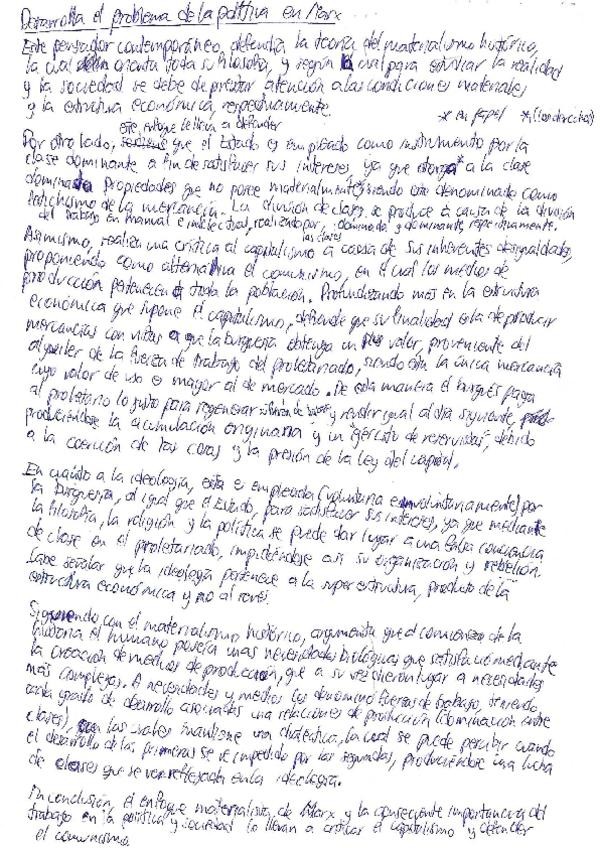 Desarrolla el problema de la política en Marx.
Este pensador contemporáneo, defendía la teoría del materialismo histórico,
la cual orienta toda su filosofía, y según la cual para explicar la realidad
y la sociedad se debe de prestar atención a las condiciones materiales
y la estructura económica, respectivamente.
* en papel *(los derechos)
este enfoque le lleva a defender
Por otro lado, que el Estado es empleado como instrumento por la
clase dominante a fin de satisfacer sus intereses, ya que otorga* a la clase
dominada propiedades que no posee materialmente, siendo esto denominado como
fetichismo de la mercancía. La división de clases se produce a causa de la división
del trabajo en manual e intelectual, realizado por las clases dominada y dominante, respectivamente.
Asimismo, realiza una crítica al capitalismo a causa de sus inherentes desigualdades,
proponiendo como alternativa el comunismo, en el cual los medios de
producción pertenecen a toda la población. Profundizando más en la estructura
económica que supone el capitalismo, defiende que su finalidad es la de producir
mercancías con vistas a que la burguesía obtenga un plus valor, proveniente del
alquiler de la fuerza de trabajo del proletariado, siendo esta la única mercancía
cuyo valor de uso es mayor al de mercado. De esta manera el burgués paga
al proletario lo justo para regenerar su fuerza de trabajo y rendir igual al día siguiente,
produciéndose la acumulación originaria y un "ejército de reservistas", debido
a la coerción de las cosas y la presión de la ley del capital.
En cuanto a la ideología, esta es empleada (voluntaria e involuntariamente) por
la burguesía, al igual que el Estado, para satisfacer sus intereses, ya que mediante
la filosofía, la religión y la política se puede dar lugar a una falsa conciencia
de clase en el proletariado, impidiéndose así su organización y rebelión.
Cabe señalar que la ideología pertenece a la superestructura, producto de la
estructura económica y no al revés.
Siguiendo con el materialismo histórico, argumenta que al comienzo de la
historia el humano poseía unas necesidades biológicas que satisfació mediante
la creación de medios de producción, que a su vez dieron lugar a necesidades
más complejas. A necesidades y medios los denominó fuerzas de trabajo, teniendo
cada grado de desarrollo asociadas una relaciones de producción (dominación entre
clases), con las cuales mantiene una dialéctica, la cual se puede percibir cuando
el desarrollo de las primeras se ve impedido por las segundas, produciéndose una lucha
de clases que se ve reflejada en la ideología.
En conclusión, el enfoque materialista de Marx y la consecuente importancia del
trabajo en la política y sociedad lo llevan a criticar el capitalismo y defender
el comunismo.